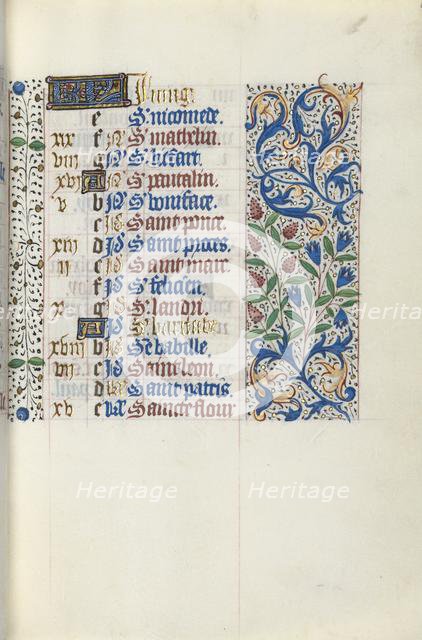 Juing
e S. nicomede.
xix f S. mathelin
viii g S. lifart.
xvi A S. pantalin.
v b S. boniface.
c Saint ponce.
xiii d Saint praxes.
ii e Saint marc.
f S. felicien.
x g S. landri.
A S. barnabe.
xviii b S. babille.
vii c Saint leon.
d Saint patris.
xv e Saincte flour
Heritage Heritage
Heritage Heritage